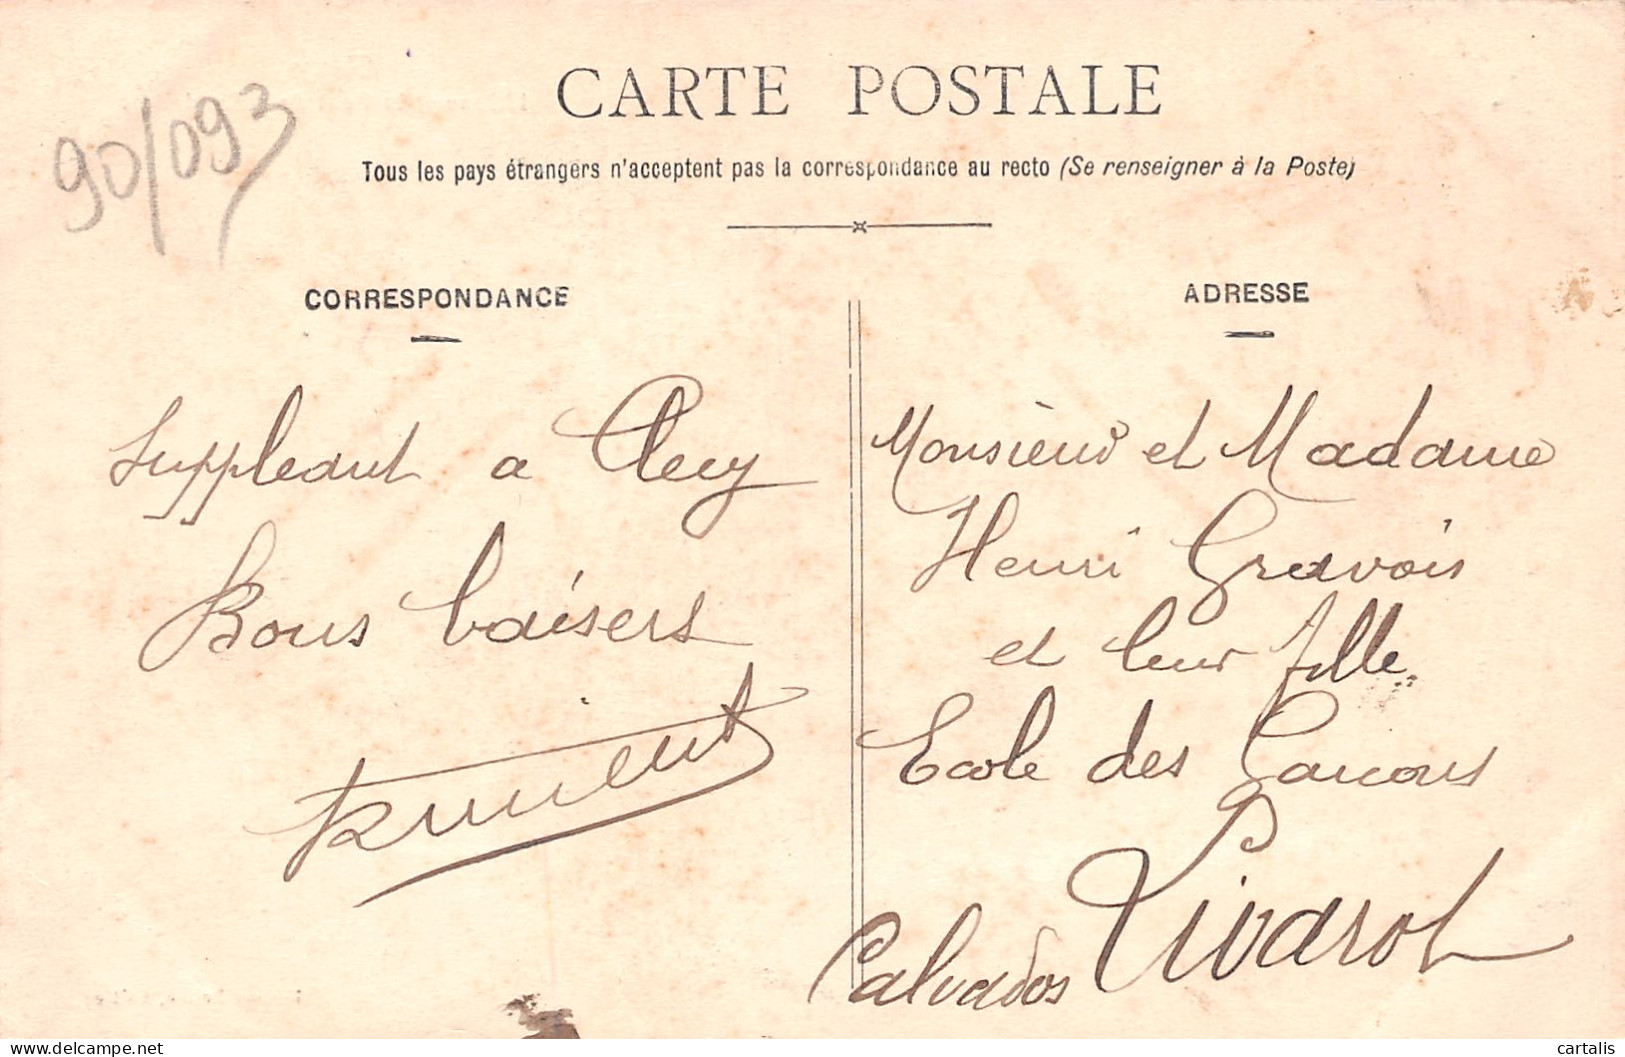 90/093
CARTE POSTALE
Tous les pays étrangers n'acceptent pas la correspondance au recto (Se renseigner à la Poste)
CORRESPONDANCE
Suppleant a Clecy
Bons baisers
ADRESSE
Monsieur et Madame
Henri Gravois
et leur fille
Ecole des Garcons
Livarot
Calvados
delcampe.net
cartalis